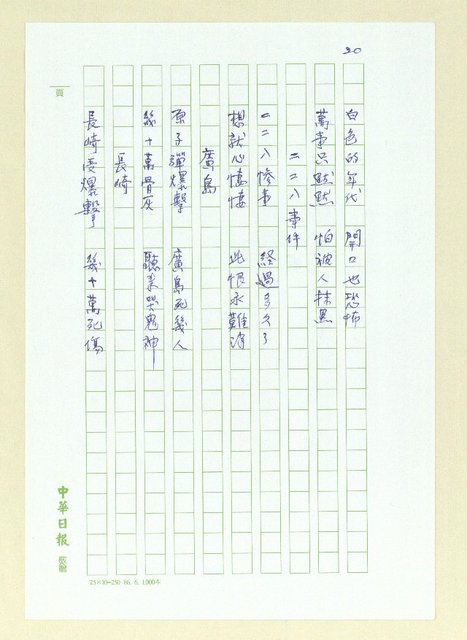 20
白色的年代 開口也恐怖
萬事只默默 怕被人抹黑
二二八事件
二二八慘事 経過多久了
想就心悽悽 此恨永難消
廣島
原子彈爆擊 廣島死幾人
幾十萬骨灰 聽来哭鬼神
長崎
長崎受爆擊 幾十萬死傷
頁
中華日報
25×10=250 86. 6. 1000本